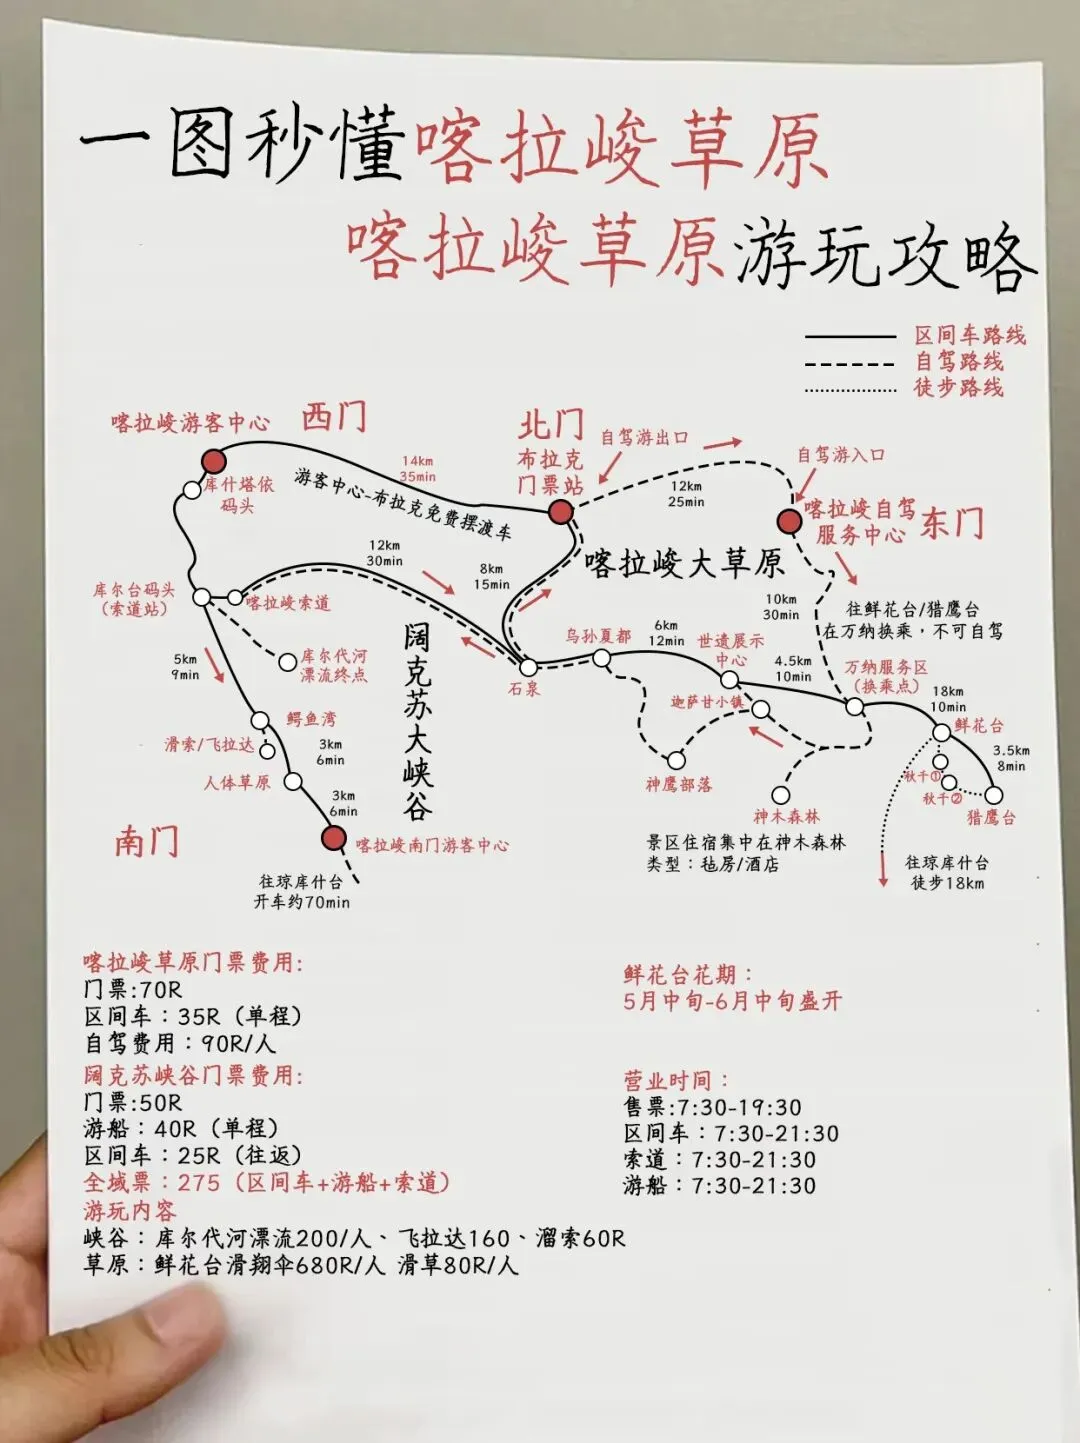 一图秒懂喀拉峻草原
喀拉峻草原游玩攻略
区间车路线
自驾路线
徒步路线
喀拉峻游客中心
西门
北门
布拉克
门票站
自驾游出口
自驾游入口
14km
35min
游客中心-布拉克免费摆渡车
12km
25min
喀拉峻自驾
服务中心
东门
库什塔依
码头
12km
30min
8km
15min
喀拉峻大草原
库尔台码头
(索道站)
喀拉峻索道
10km
30min
往鲜花台/猎鹰台
在万纳换乘，不可自驾
阔克苏大峡谷
乌孙夏都
6km
12min
世遗展示
中心
4.5km
10min
万纳服务区
(换乘点)
18km
10min
5km
9min
库尔代河
漂流终点
石泉
迦萨甘小镇
鲜花台
3.5km
8min
鳄鱼湾
滑索/飞拉达
3km
6min
人体草原
神鹰部落
秋千①
秋千②
3km
6min
神木森林
猎鹰台
南门
喀拉峻南门游客中心
景区住宿集中在神木森林
类型：毡房/酒店
往琼库什台
徒步18km
往琼库什台
开车约70min
喀拉峻草原门票费用:
门票:70R
区间车：35R（单程）
自驾费用：90R/人
阔克苏峡谷门票费用:
门票:50R
游船：40R（单程）
区间车：25R（往返）
全域票：275（区间车+游船+索道）
游玩内容
峡谷：库尔代河漂流200/人、飞拉达160、溜索60R
草原：鲜花台滑翔伞680R/人 滑草80R/人
鲜花台花期：
5月中旬-6月中旬盛开
营业时间：
售票:7:30-19:30
区间车：7:30-21:30
索道：7:30-21:30
游船：7:30-21:30